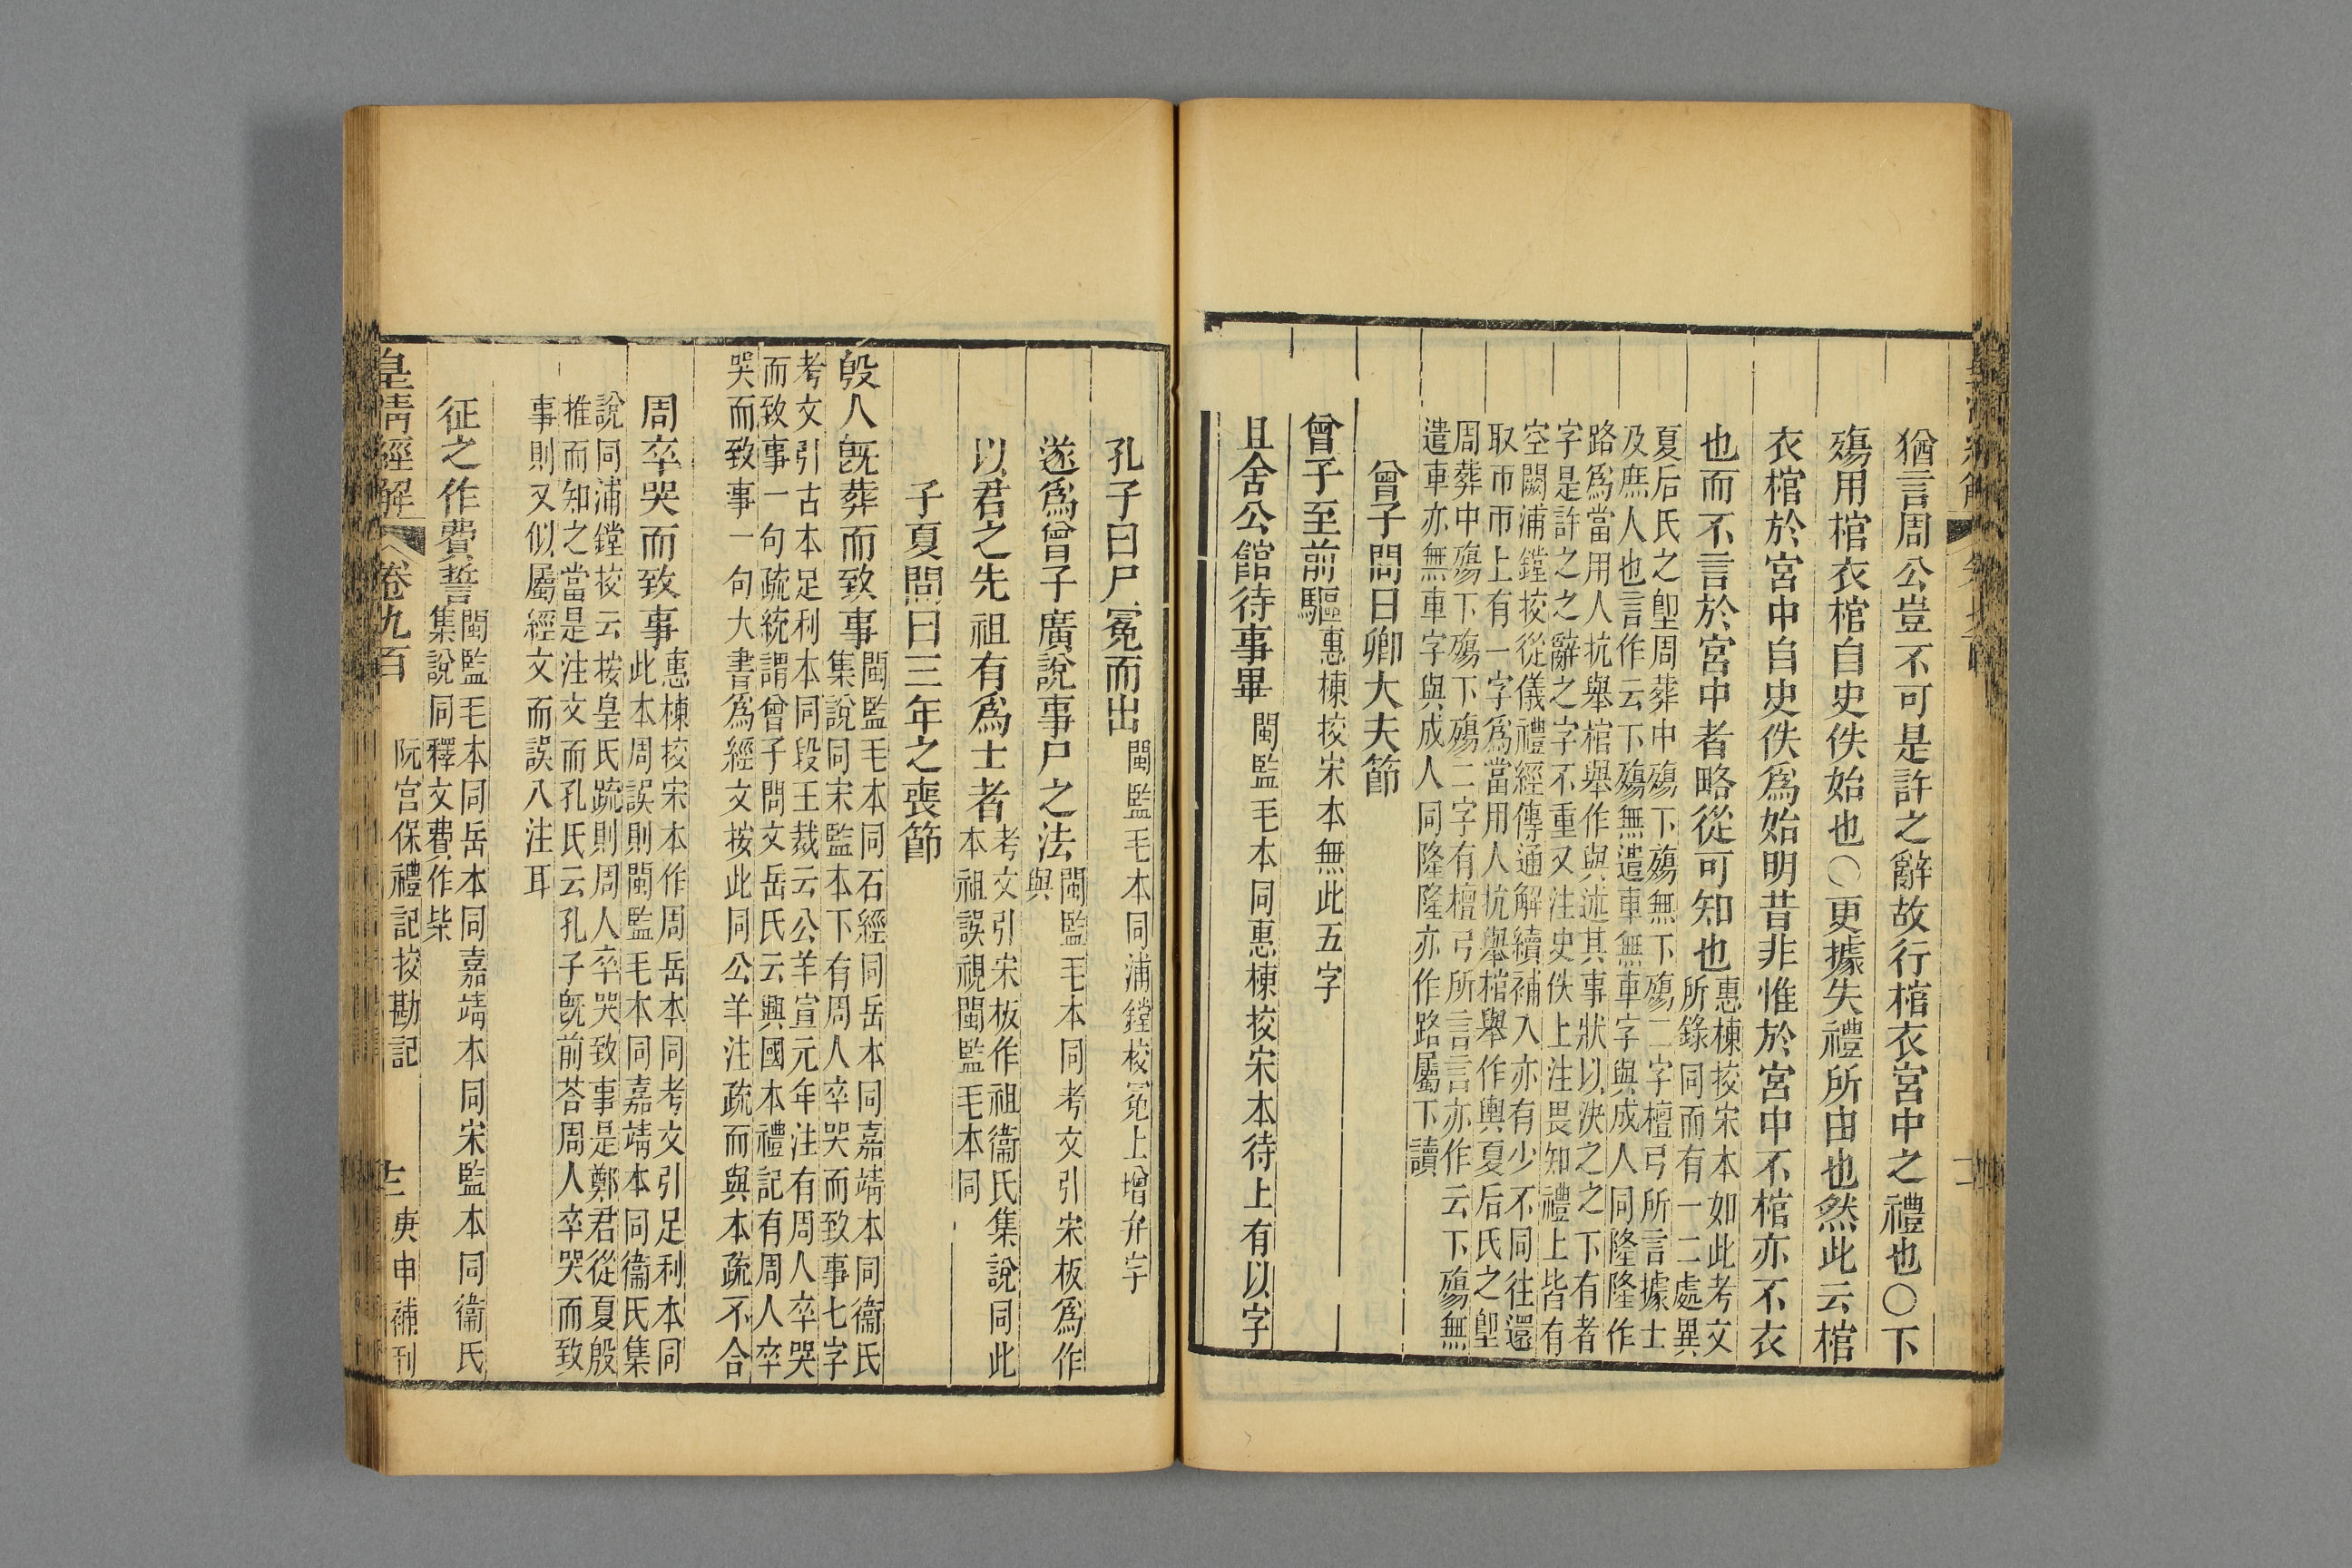 猶言周公豈不可是許之辭故行棺衣宮中之禮也〇下
殤用棺衣棺自史佚始也〇更據失禮所由也然此云棺
衣棺於宮中自史佚爲始明昔非惟於宮中不棺亦不衣
也而不言於宮中者略從可知也
惠棟挍宋本如此考文
所錄同而有一二處異
夏后氏之堲周葬中殤下殤無下殤二字檀弓所言據士
及庶人也言作云下殤無遣車無車字與成人同隆隆作
路爲當用人抗舉棺舉作與述其事狀以決之之下有者
字是許之之辭之字不重又注史佚上注畏知禮上皆有
空闕浦鏜挍從儀禮經傳通解續補入亦有少不同往還
取帀帀上有一字爲當用人抗舉棺舉作輿夏后氏之堲
周葬中殤下殤下殤二字有檀弓所言言亦作云下殤無
遣車亦無車字與成人同隆隆亦作路屬下讀
曾子問曰卿大夫節
曾子至前驅
惠棟挍宋本無此五字
且舍公館待事畢
閩監毛本同惠棟挍宋本待上有以字
孔子曰尸冕而出
閩監毛本同浦鏜校冕上增弁字
遂爲曾子廣說事尸之法
閩監毛本同考文引宋板爲作
與
以君之先祖有爲士者
考文引宋板作祖衞氏集說同此
本祖誤視閩監毛本同
子夏問曰三年之喪節
殷人旣葬而致事
閩監毛本同石經同岳本同嘉靖本同衞氏
集說同宋監本下有周人卒哭而致事七字
考文引古本足利本同段王裁云公羊宣元年注有周人卒哭
而致事一句疏統謂曾子問文岳氏云興國本禮記有周人卒
哭而致事一句大書爲經文按此同公羊注疏而與本疏不合
周卒哭而致事
惠棟校宋本作周岳本同考文引足利本同
此本周誤則閩監毛本同嘉靖本同衞氏集
說同浦鏜挍云按皇氏疏則周人卒哭致事是鄭君從夏殷
推而知之當是注文而孔氏云孔子旣前荅周人卒哭而致
事則又似屬經文而誤八注耳
征之作費誓
閩監毛本同岳本同嘉靖本同宋監本同衞氏
集說同釋文費作粊
皇清經解 卷九百 阮宮保禮記挍勘記 十二 庚申補刊